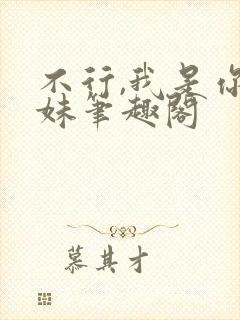 不行,我是你
妹笔趣阁
慕其才